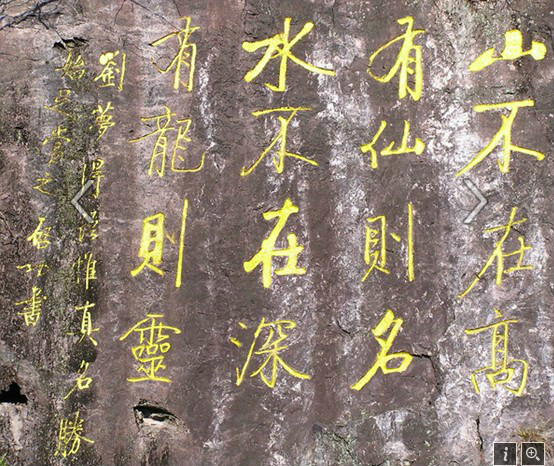 山不在高
有仙則名
水不在深
有龍則靈
劉夢得語惟真名勝
始足當之啟功書